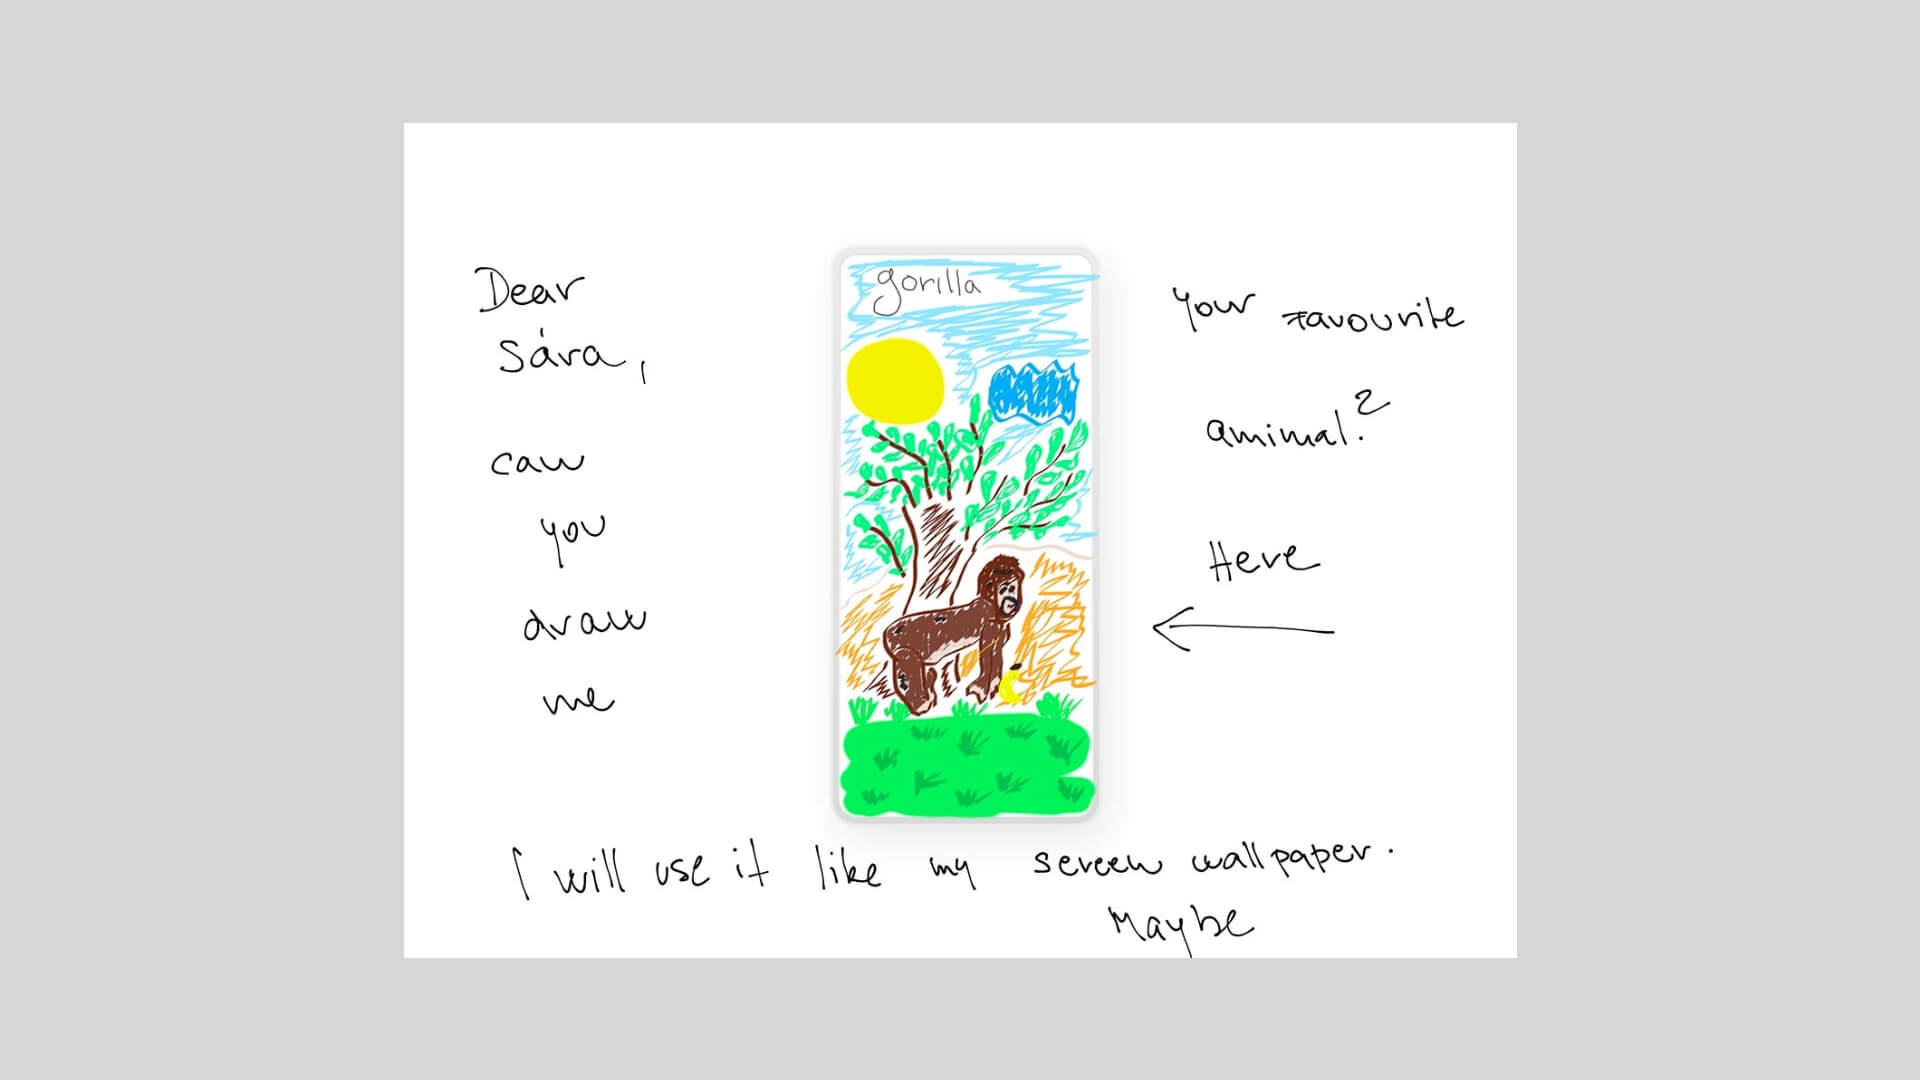 Dear
Sára,
can
you
draw
me
gorilla
Your Favourite
animal?
Here
I will use it like my screen wallpaper.
Maybe